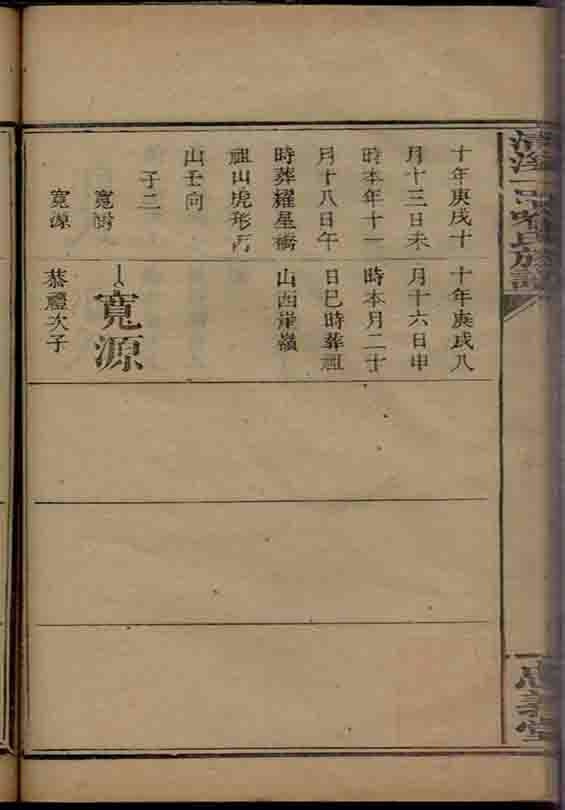 十年庚戌十
月十三日未
時本年十一
月十八日午
時葬羅星橋
祖山虎形丙
山壬向
子二
寬樹
寬源
十年庚戌八
月十六日申
時本月二十
日巳時葬祖
山西崖嶺
寬源
恭禮次子
氏族譜
忠義堂